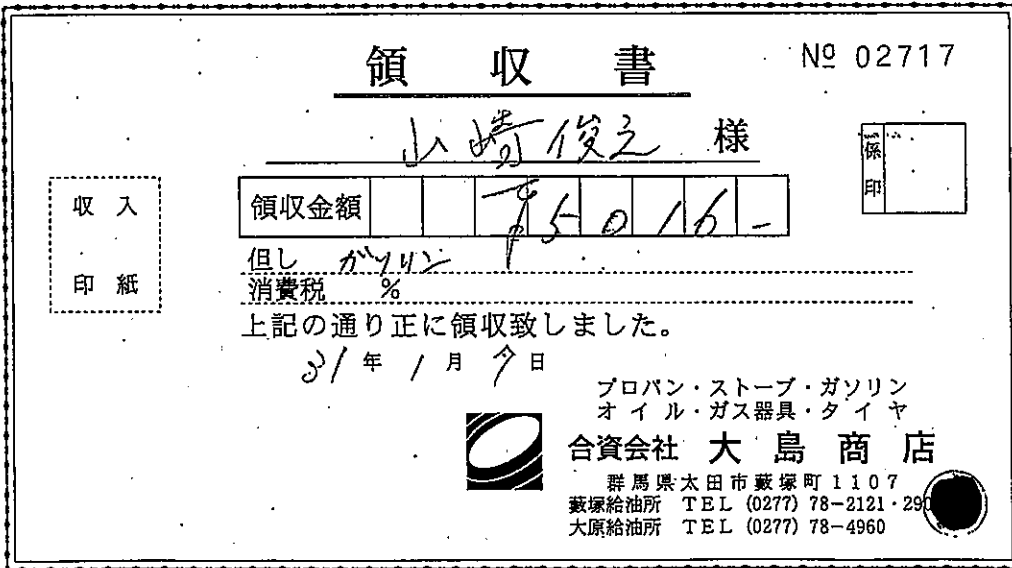 領収書 № 02717
山崎俊之 様
係印
収入
印紙
領収金額 ¥5016-
但し ガソリン
消費税 %
上記の通り正に領収致しました。
31年1月9日
プロパン・ストーブ・ガソリン
オイル・ガス器具・タイヤ
合資会社 大島商店
群馬県太田市藪塚町1107
藪塚給油所 TEL (0277) 78-2121・290
大原給油所 TEL (0277) 78-4960